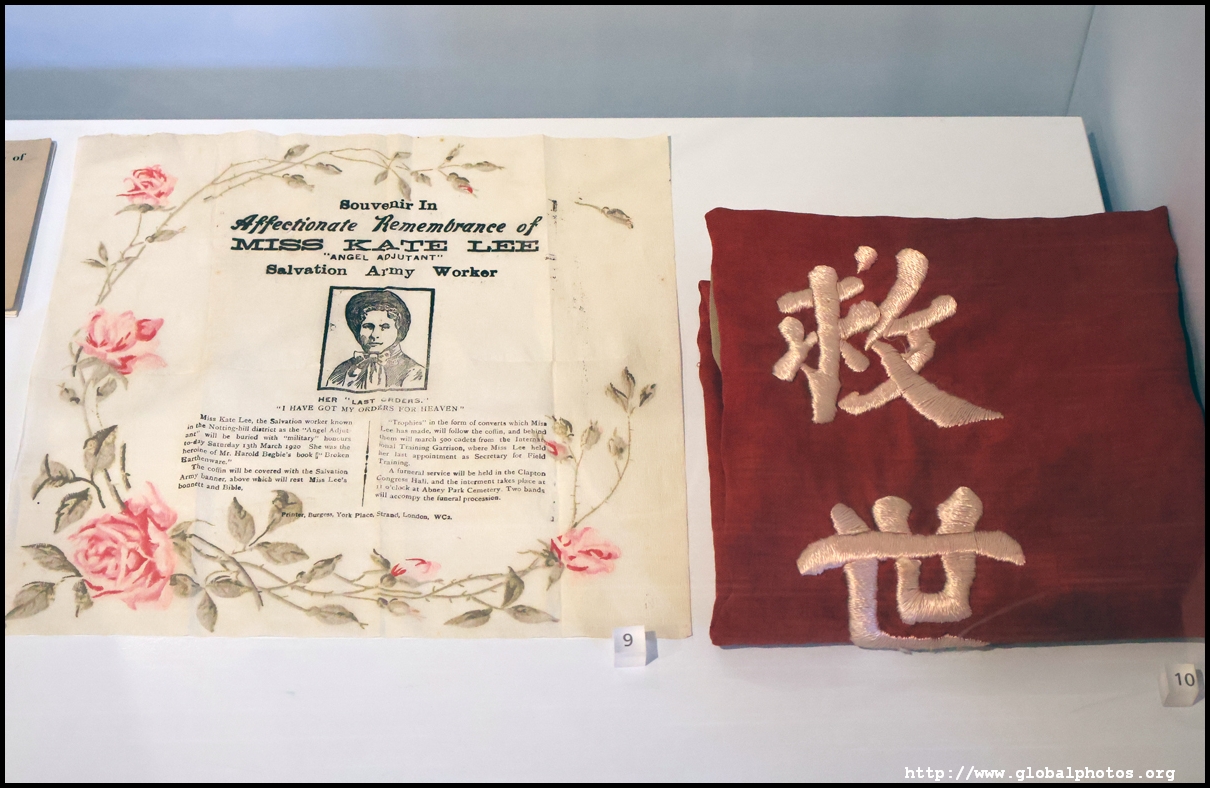 of
Souvenir In
Affectionate Remembrance of
MISS KATE LEE
"ANGEL ADJUTANT"
Salvation Army Worker
HER "LAST ORDERS."
"I HAVE GOT MY ORDERS FOR HEAVEN"
Miss Kate Lee, the Salvation worker known
in the Notting-hill district as the "Angel Adjut
ant" will be buried with "military" honours
to-day Saturday 13th March 1920 She was the
heroine of Mr. Harold Begbie's book "Broken
Earthenware."
The coffin will be covered with the Salvation
Army banner, above which will rest Miss Lee's
bonnett and Bible.
"Trophies" in the form of converts which Miss
Lee has made, will follow the coffin, and behind
them will march 500 cadets from the Internat-
ional Training Garrison, where Miss Lee held
her last appointment as Secretary for Field
Training.
A funeral service will be held in the Clapton
Congress Hall, and the interment takes place at
11 o'clock at Abney Park Cemetery. Two bands
will accompy the funeral procession.
Printer, Burgess, York Place, Strand, London, WC2.
救
世
9
10
http://www.globalphotos.org